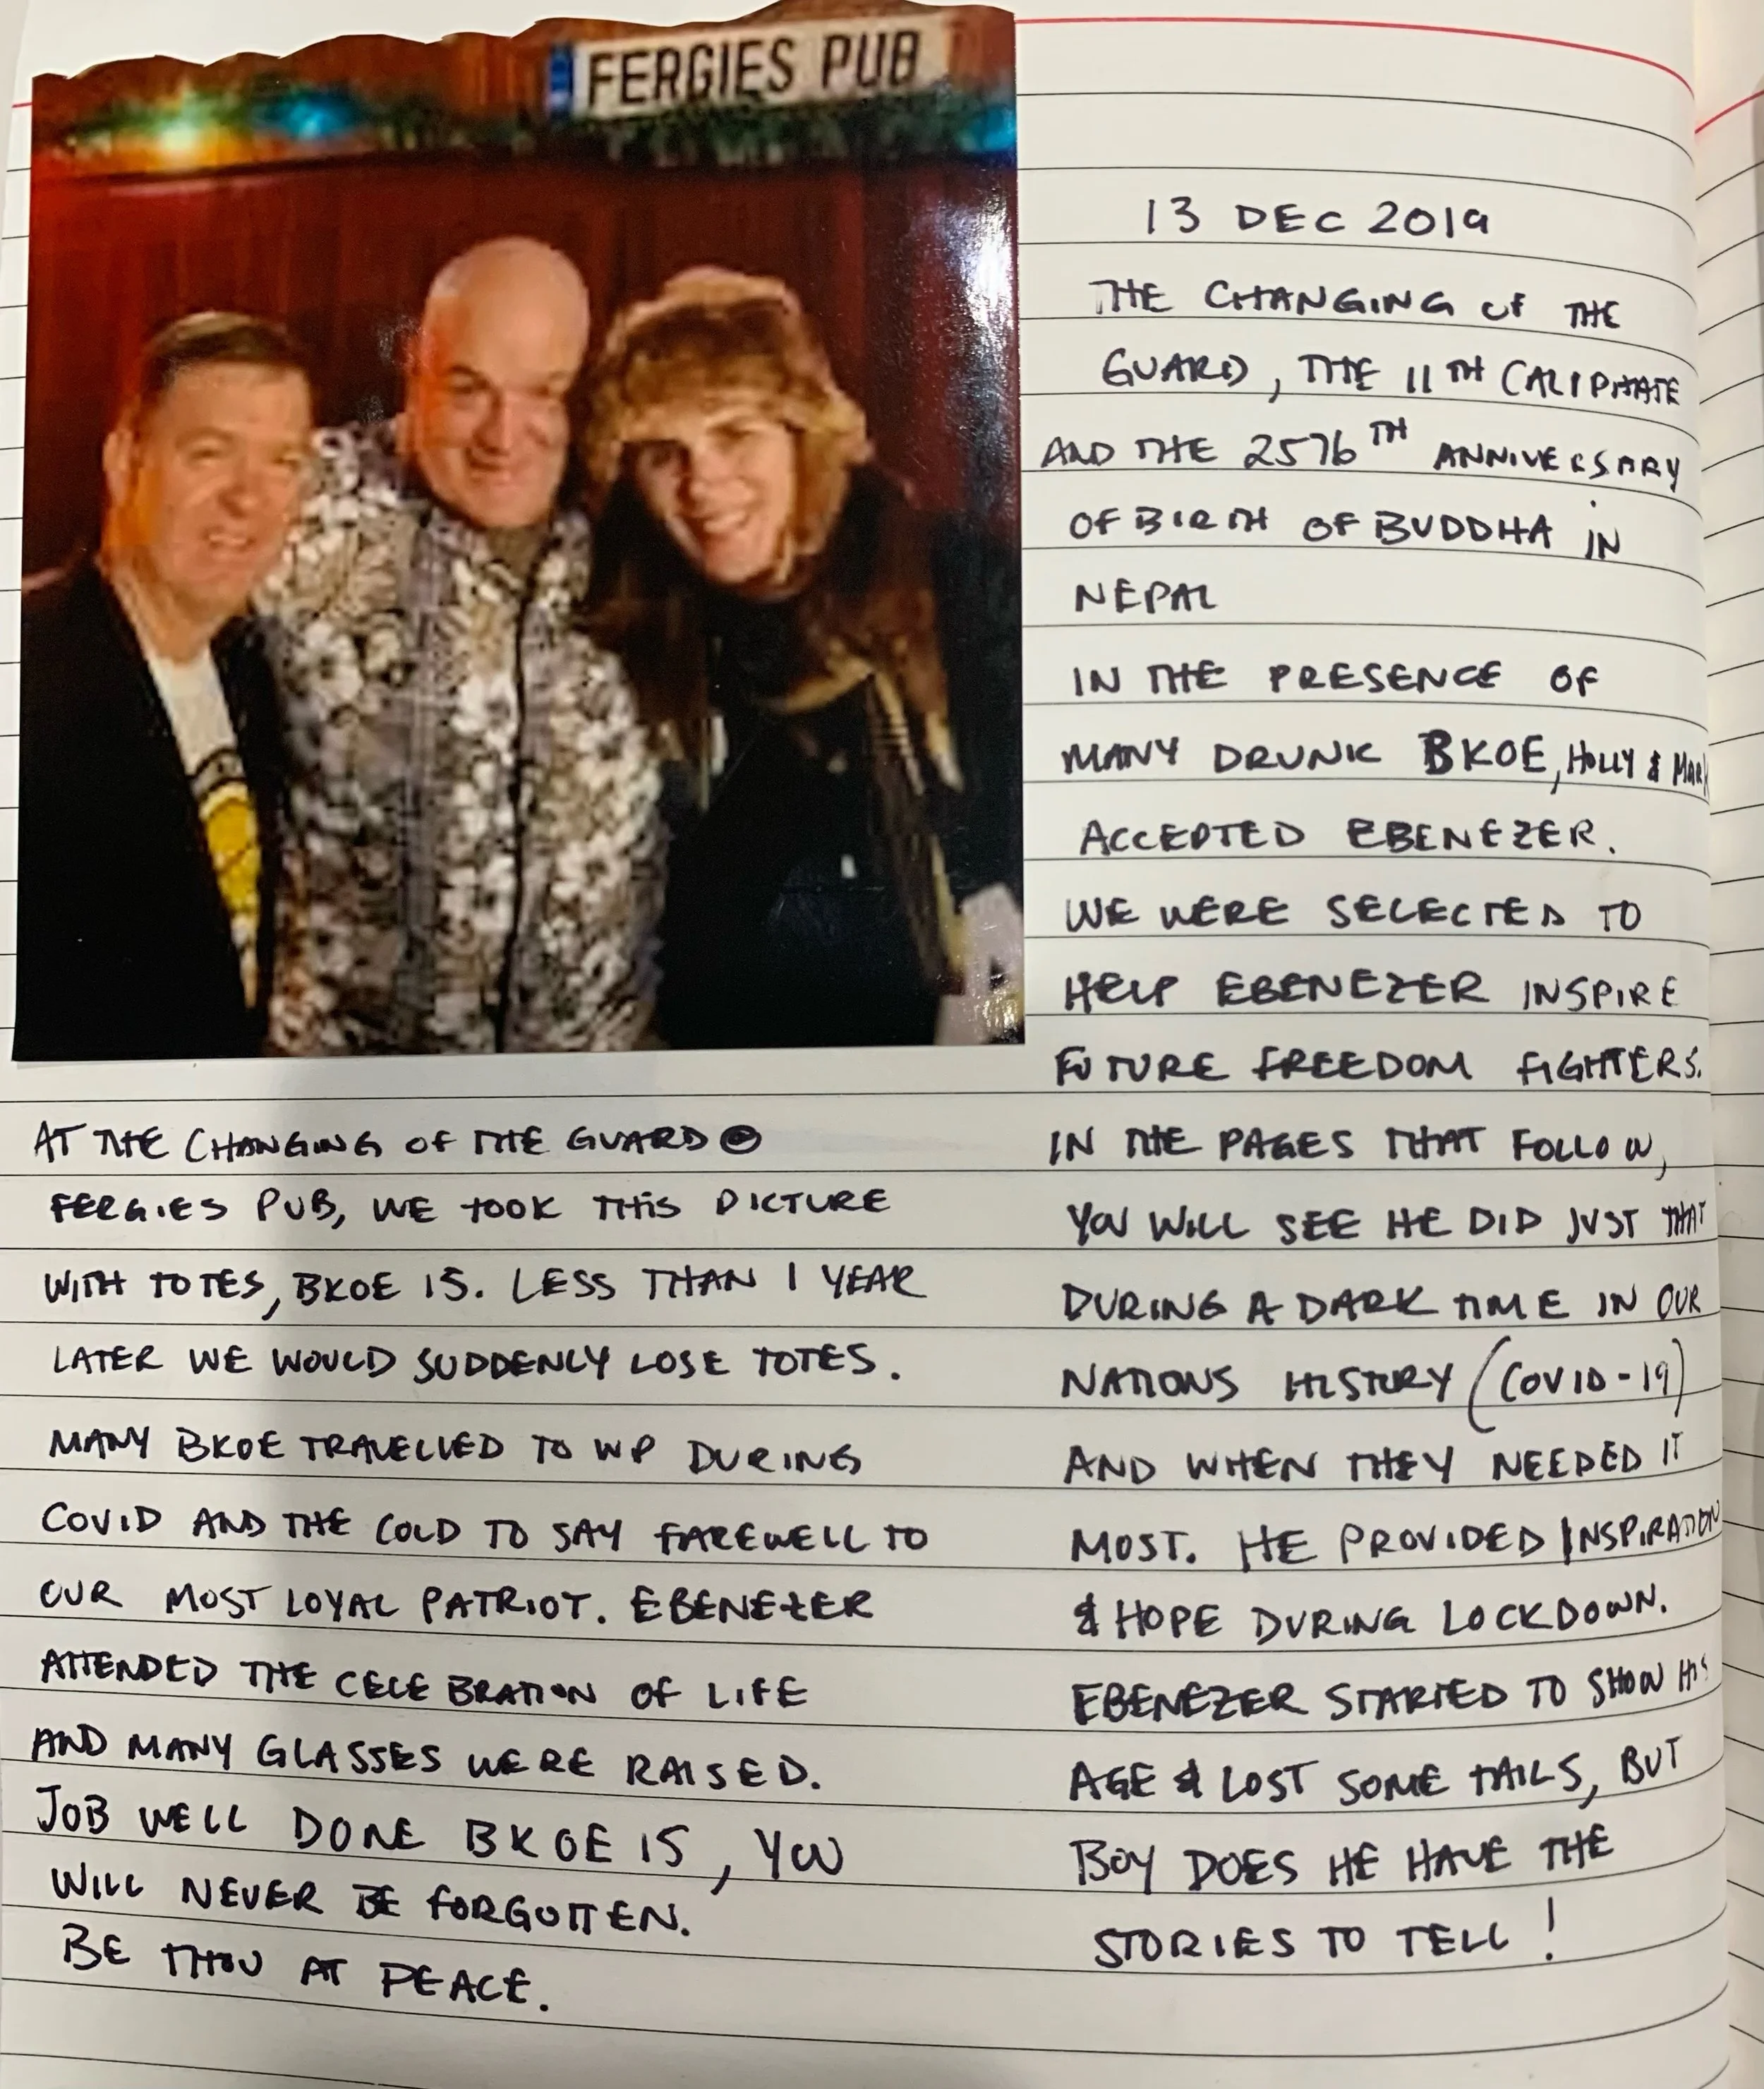 FERGIES PUB
13 DEC 2019
THE CHANGING OF THE
GUARD, THE 11TH CALIPHATE
AND THE 2576TH ANNIVERSARY
OF BIRTH OF BUDDHA IN
NEPAL
IN THE PRESENCE OF
MANY DRUNK BKOE, HOLLY & MARK
ACCEPTED EBENEZER.
WE WERE SELECTED TO
HELP EBENEZER INSPIRE
FUTURE FREEDOM FIGHTERS.
IN THE PAGES THAT FOLLOW,
YOU WILL SEE HE DID JUST THAT
DURING A DARK TIME IN OUR
NATIONS HISTORY (COVID-19)
AND WHEN THEY NEEDED IT
MOST. HE PROVIDED INSPIRATION
& HOPE DURING LOCKDOWN.
EBENEZER STARTED TO SHOW HIS
AGE & LOST SOME TAILS, BUT
BOY DOES HE HAVE THE
STORIES TO TELL!
AT THE CHANGING OF THE GUARD @
FERGIES PUB, WE TOOK THIS PICTURE
WITH TOTES, BKOE 15. LESS THAN 1 YEAR
LATER WE WOULD SUDDENLY LOSE TOTES.
MANY BKOE TRAVELLED TO WP DURING
COVID AND THE COLD TO SAY FAREWELL TO
OUR MOST LOYAL PATRIOT. EBENEZER
ATTENDED THE CELEBRATION OF LIFE
AND MANY GLASSES WERE RAISED.
JOB WELL DONE BKOE 15, YOU
WILL NEVER BE FORGOTTEN.
BE THOU AT PEACE.